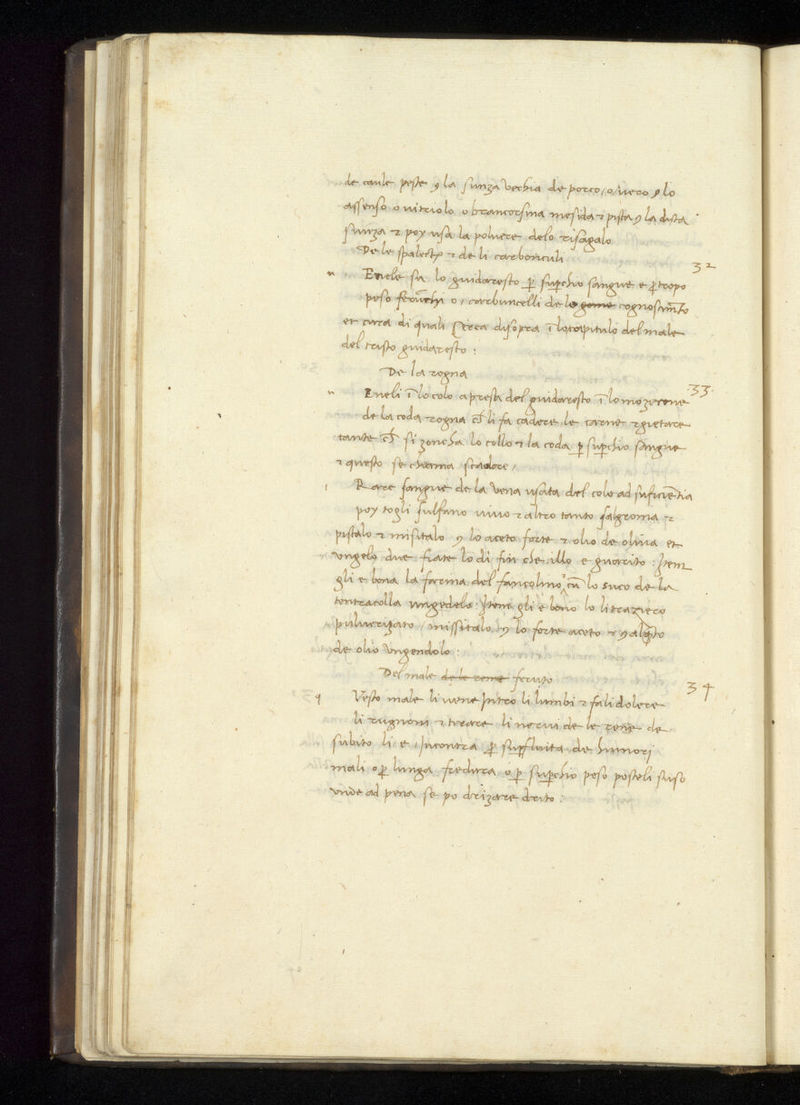 de caule peste 9 la sunza vechia de porco / o vero 9 lo
assenso o vitriolo o brancorsina mesida ⁊ pista 9 la dicta
sunza ⁊ poy usa la polvere delo risagalo
De le spalesty ⁊ de li carbonculi
32
Enele fa lo guidaresto p̄ sup̄chio sangue e p̄ tropo
peso o / carbuncelli de le gome cognosim̄to
et cura di quali disopra ī lo capitulo del male
del tristo guidaresto :
De la rogna
33
Eneli ī lo colo apresta del guidaresto ī lo mozerone
de la coda rogna ch̄ li fa cadere le carne ⁊ gietare
tante ch̄ si zoncha lo collo ⁊ la coda p̄ sup̄chio sangue
⁊ questo se chiama scadore /
Rare sangue de la vena usata del colo ad suficiē̄tia
poy togli sulfano vivo ⁊ altro tanto salgroma ⁊
pistalo ⁊ misitalo 9 lo aceto forte ⁊ olio de oliva et
ungelo due fiate lo di fin che illo e guarito : Item
gli e bona la farina del fancolino cū lo suco de la
tontracolla ungedelo : Item gli e bono lo litraziero
pulverizato / missitalo 9 lo forte aceto ⁊ 9 alq̄to
de olio ungendolo :
Del male de le rene feruto
34
q Vesto male li vene Intro li lumbi ⁊ fali dolere
li rugnoni ⁊ tirare li nervi de le rene de
subito li e / Incontra p̄ supfluita de humori
mali o p̄ lunga fredura o p̄ sup̄chio peso postoli suso
unde ad pena se po drizare drito :